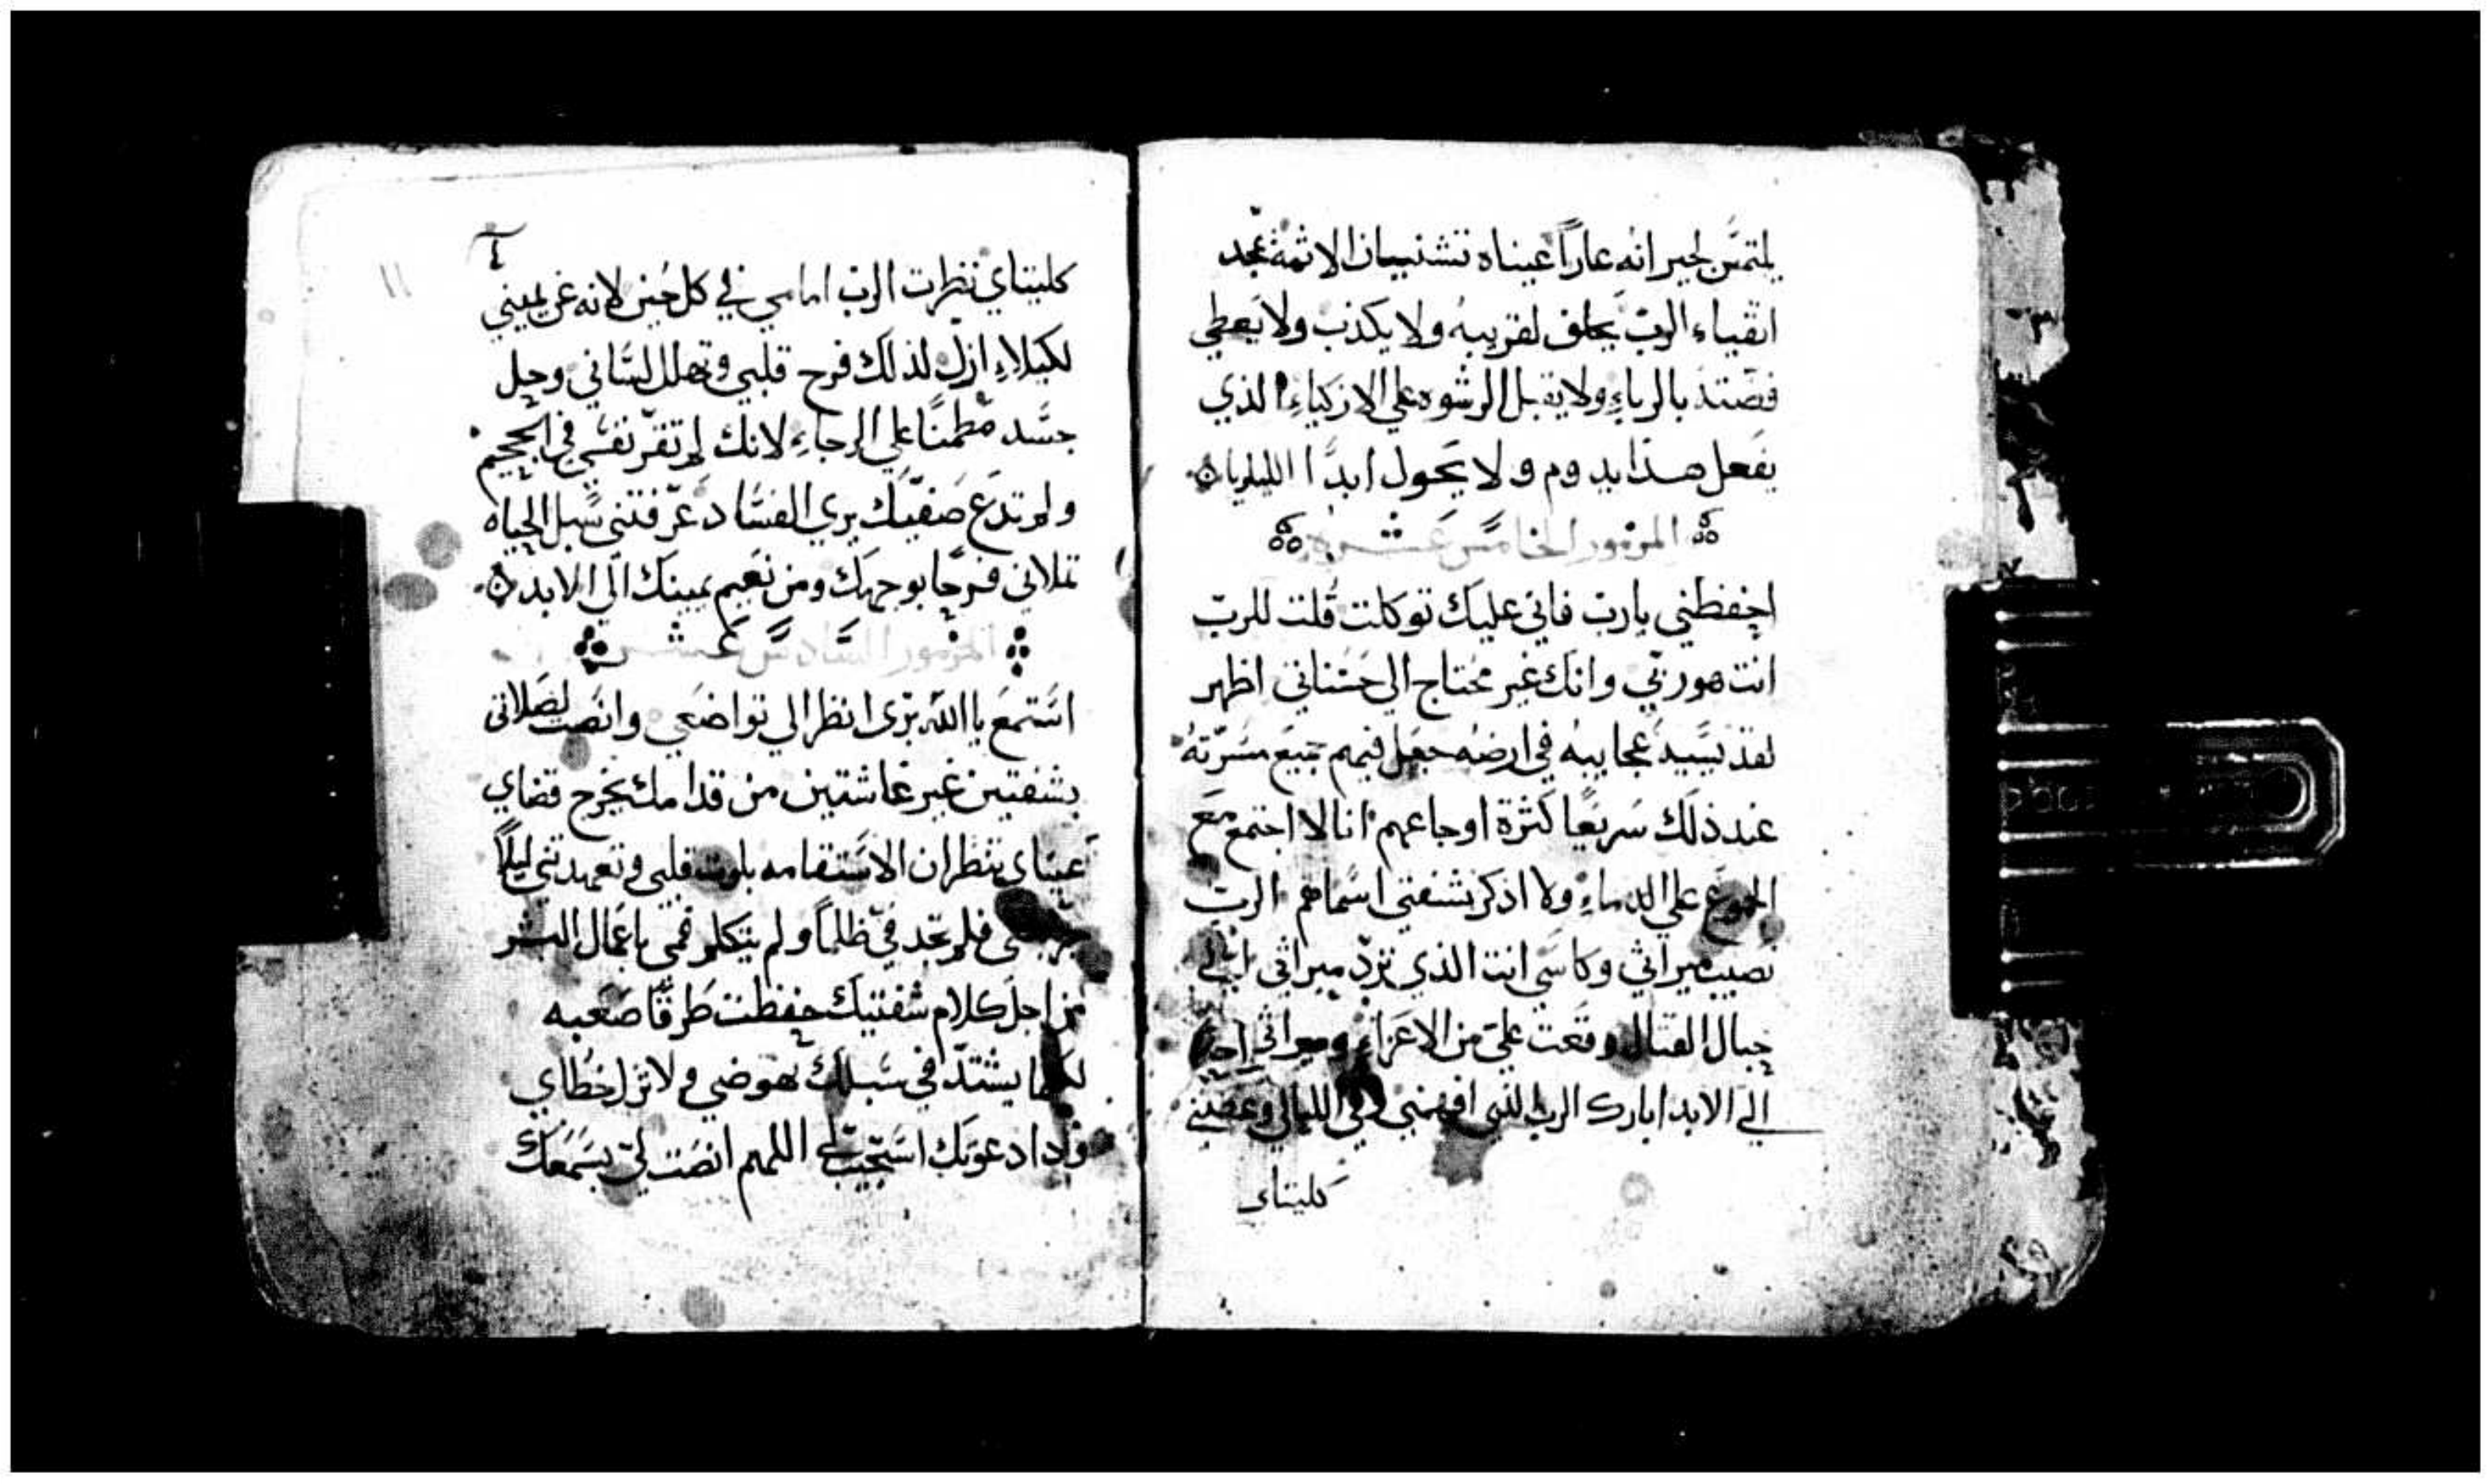 يلتمس لجيرانه عاراً عيناه تشنيان الاثمة يمجد
اتقياء الرب يحلف لقريبه ولا يكذب ولا يعطي
فضته بالرباء ولا يقبل الرشوه علي الازكياء الذي
يفعل هذا يدوم ولا يحول ابداً الليلويا
المزمور الخامس عشر
احفظني يارب فاني عليك توكلت قلت للرب
انت هو ربي وانك غير محتاج الي حسناتي اظهر
لقديسيه عجايبه في ارضه جعل فيهم جميع مسرّته
عند ذلك سريعاً كثرة اوجاعهم انا لا اجتمع مع
الجموع علي الدماء ولا اذكر بشفتي اسماهم الرب
نصيب ميراثي وكاسي انت الذي تردّ ميراثي الي
حبال القتال وقعت عليّ من الاعزاء وميراثي
الي الابد ابارك الرب الذي افهمني وفي الليالي وعظتني
كليتاي
٤
١١
كليتاي نظرت الرب امامي في كل حين لانه عن يميني
لكيلا ازل لذلك فرح قلبي وتهلل لساني وحل
جسد مطمئناً علي الرجاء لانك لم تقرّ نفسي في الجحيم
ولم تدع صفيّك يري الفساد عرّفتني سبل الحياه
تملاني فرحاً بوجهك ومن نعيم يمينك الي الابد
المزمور السادس عشر
استمع يا الله برّى انظر الي تواضعي وانصت لصلاتي
بشفتين غير غاشتين من قدامك يخرج قضاي
عيناي تنظران الاستقامه بلوت قلبي وتعهدتني ليلاً
فلم تجد فيّ ظلماً ولم يتكلم فمي باعمال البشر
من اجل كلام شفتيك حفظت طرقاً صعبه
لكيما يشتدّ في سبلك نهوضي ولا تزل خطاي
واذا دعوتك استجيب لي اللهم انصت ليّ بسمعك